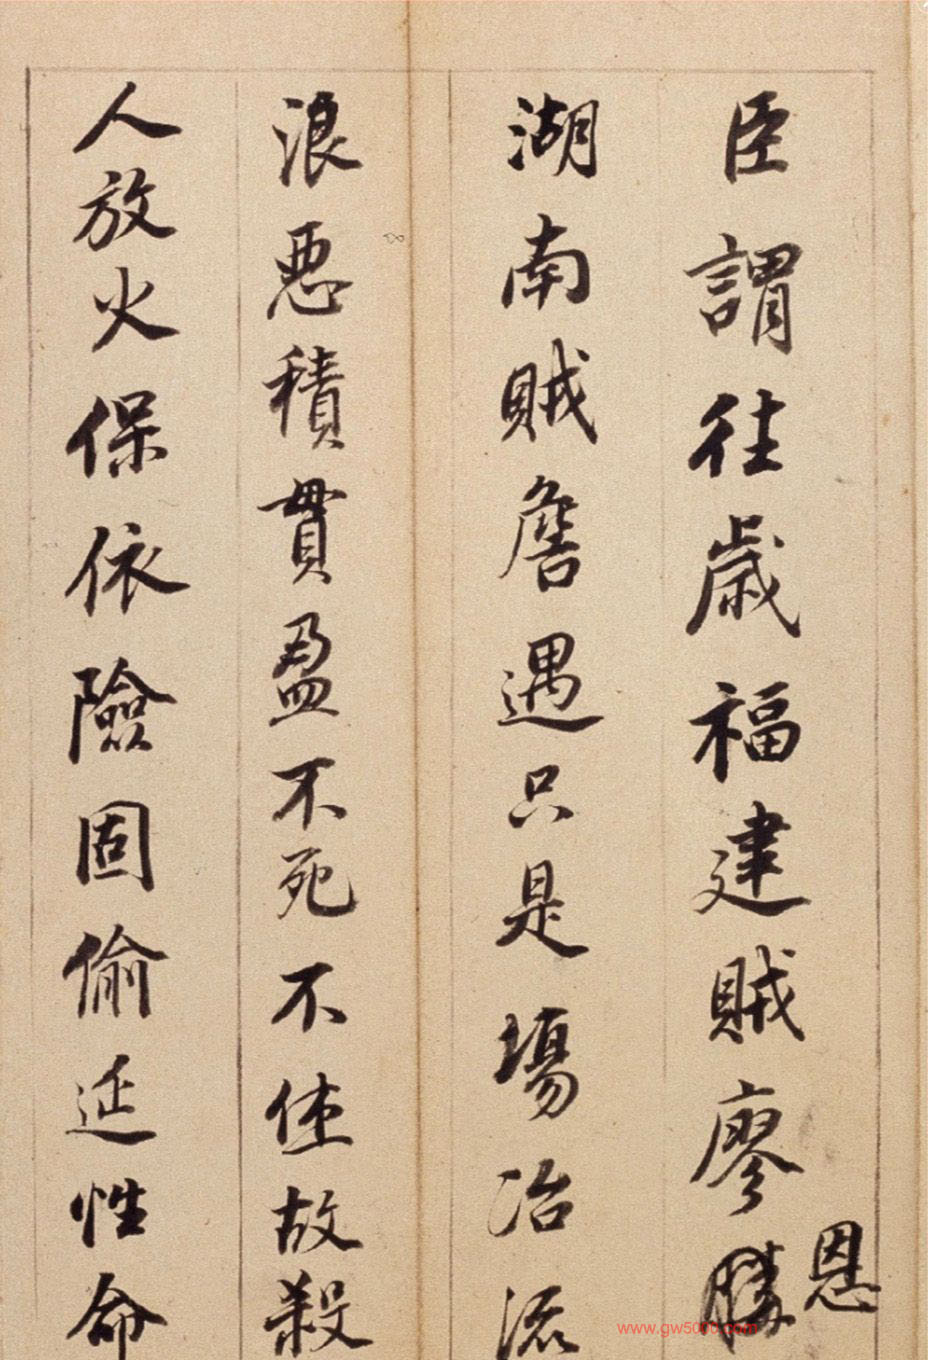 臣謂往歲福建賊廖勝恩
湖南賊詹遇只是場冶流
浪悪積貫盈不死不住故殺
人放火保依險固偷延性命